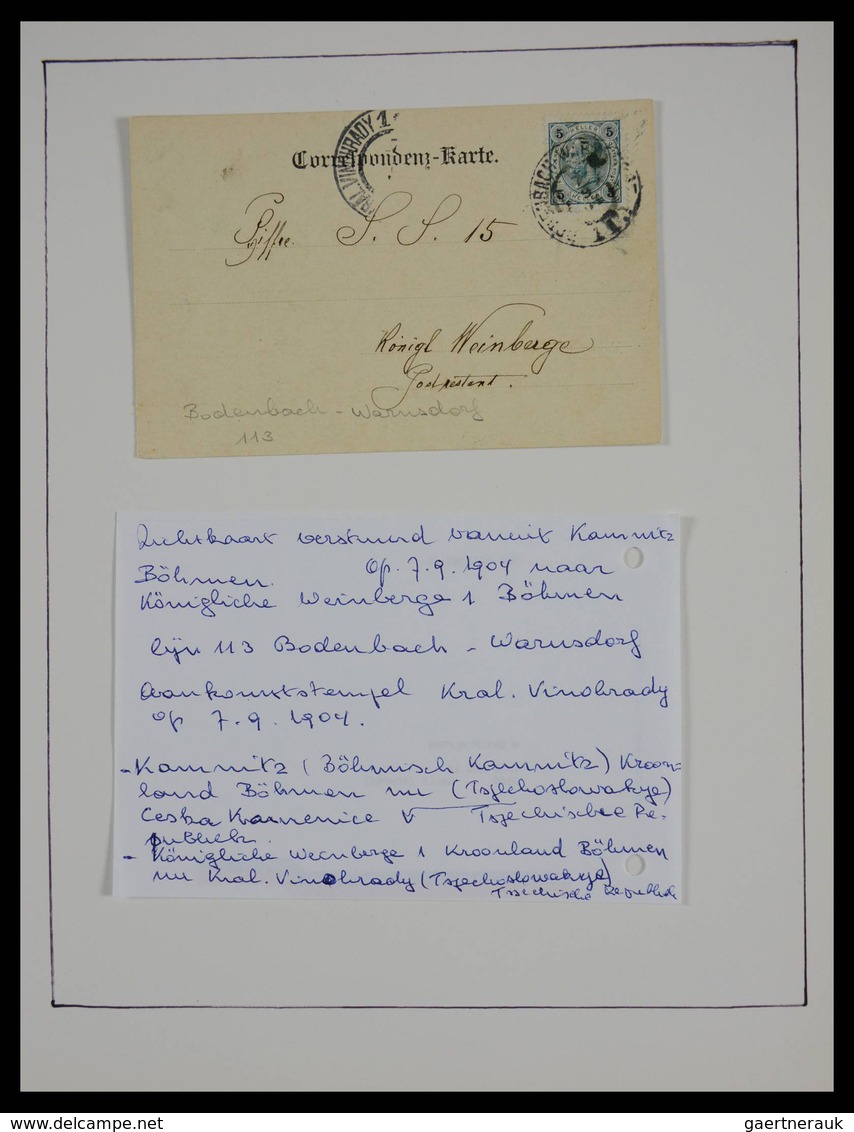 KRAL. VINOHRADY 1
Correspondenz-Karte.
5 HELLER 5
BODENBACH-WARNSDORF
113
Chiffre S. S. 15
Königl Weinberge
Postrestant.
Bodenbach - Warnsdorf
113
Zichtkaart verstuurd vanuit Kamnitz
Böhmen. op. 7.9.1904 naar
Königliche Weinberge 1 Böhmen
lijn 113 Bodenbach - Warnsdorf
Aankomststempel Kral. Vinohrady
op 7.9.1904.
- Kamnitz (Böhmisch Kamnitz) Kroon=
land Böhmen nu (Tsjechoslowakije)
Ceska Kamenice Tsjechische Re-
publiek.
- Königliche Weinberge 1 Kroonland Böhmen
nu Kral. Vinohrady (Tsjechoslowakije)
Tsjechische Republiek
gaertnerauk